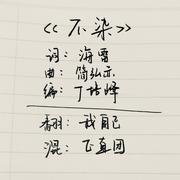 《不染》
词:海雷
曲:简弘亦
编:丁培峰
翻:我自己
混:正直团